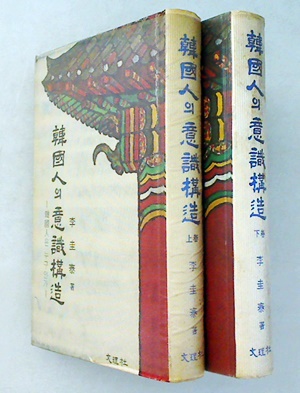 韓國人의意識構造
李圭泰 著
文理社
韓國人의意識構造
上卷
李圭泰 著
文理社
韓國人의意識構造
下卷
李圭泰 著
文理社